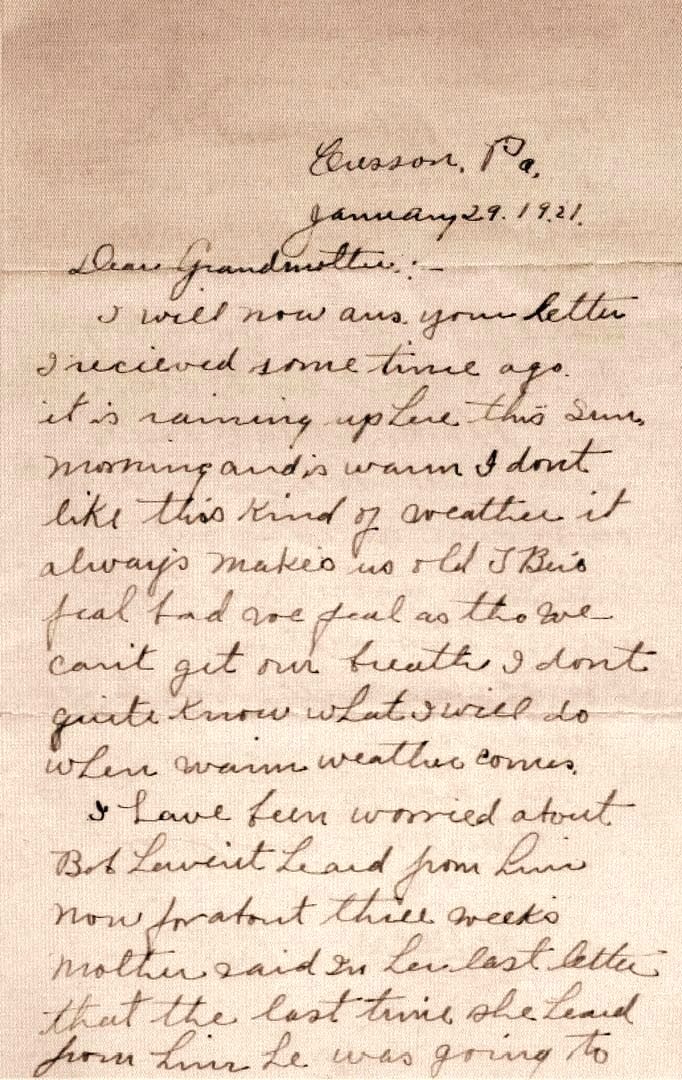 Cresson, Pa.
January 29. 1921.
Dear Grandmother:-
I will now ans. your letter
I recieved some time ago.
it is raining up here this Sun.
morning and is warm I dont
like this kind of weather it
always makes us old T B's
feal bad we feal as tho we
can't get our breath I dont
quite know what I will do
when warm weather comes.
I have been worried about
Bob havent heard from him
now for about three weeks
Mother said in her last letter
that the last time she heard
from him he was going to